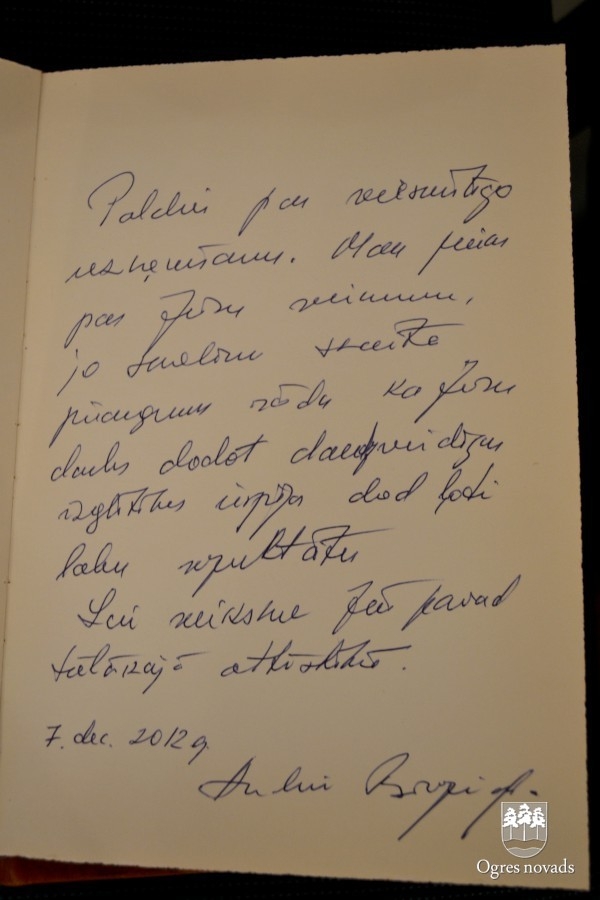 Paldies par viesmīlīgo
uzņemšanu. Man prieks
par Jūsu veikumu,
jo skolēnu skaita
pieaugums rāda ka Jūsu
darbs dodot daudzveidīgas
izglītības iespēju dod ļoti
labu rezultātu
Lai veiksme Jūs pavad
tālākajā attīstībā.
7. dec. 2012 g.
Ogres novads